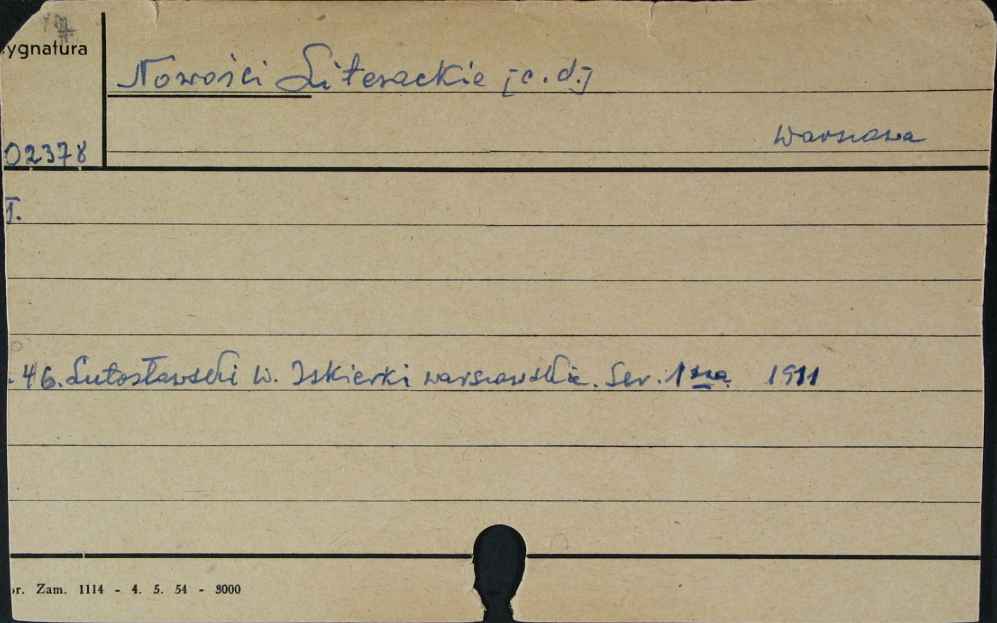 ygnatura
Nowości Literackie [c.d.]
Warszawa
02378
T.
.46. Lutosławski W. Iskierki warszawskie. Ser. 1sza 1911
r. Zam. 1114 - 4. 5. 54 - 3000